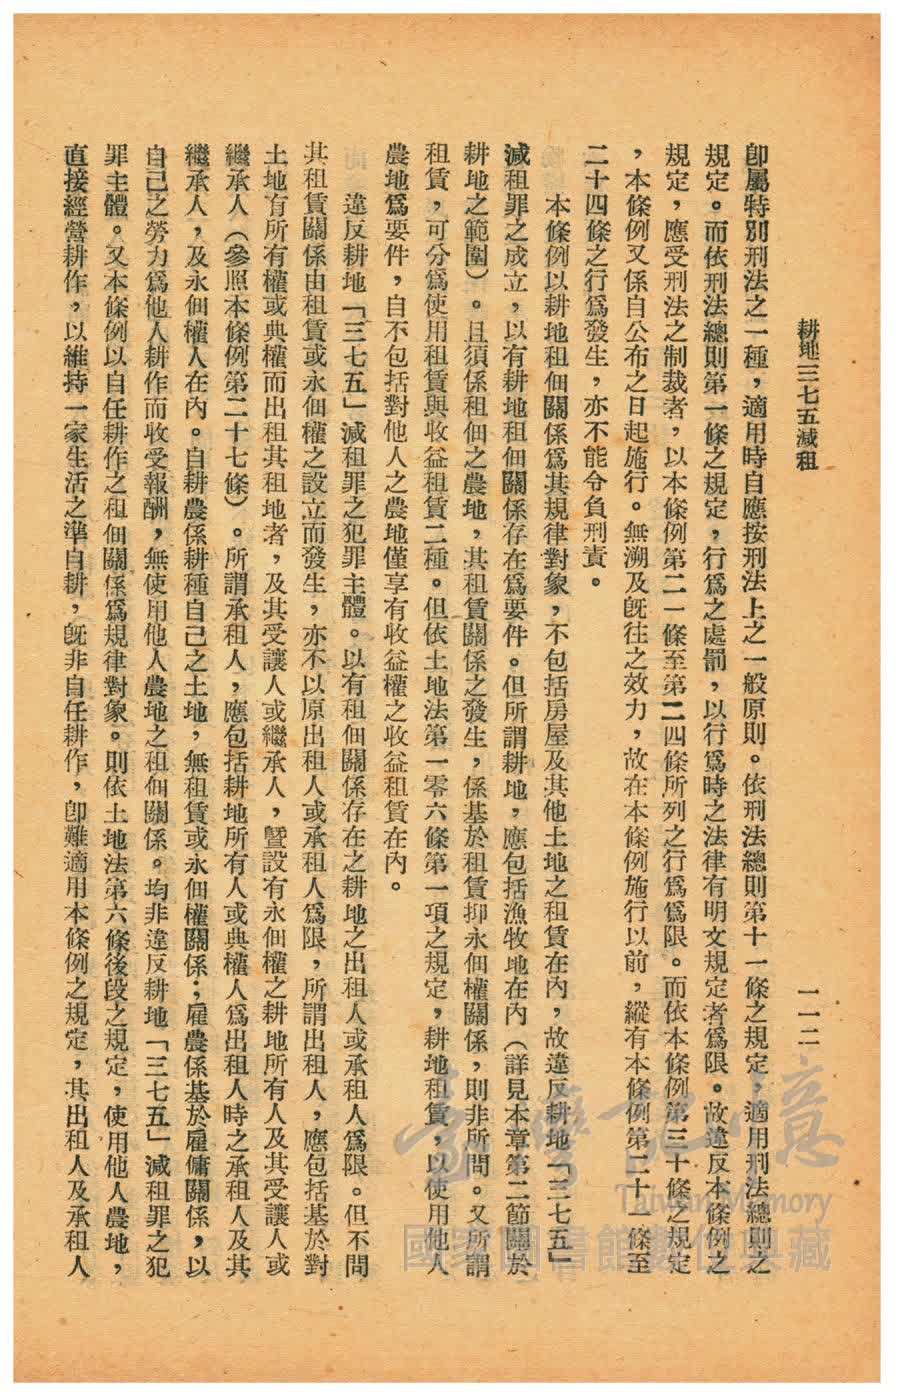 耕地三七五減租
一一二
卽屬特別刑法之一種，適用時自應按刑法上之一般原則。依刑法總則第十一條之規定，適用刑法總則之
規定。而依刑法總則第一條之規定，行爲之處罰，以行爲時之法律有明文規定者爲限。故違反本條例之
規定，應受刑法之制裁者，以本條例第二一條至第二四條所列之行爲爲限。而依本條例第三十條之規定
，本條例又係自公布之日起施行。無溯及旣往之效力，故在本條例施行以前，縱有本條例第二十一條至
二十四條之行爲發生，亦不能令負刑責。
本條例以耕地租佃關係爲其規律對象，不包括房屋及其他土地之租賃在內，故違反耕地「三七五」
減租罪之成立，以有耕地租佃關係存在爲要件。但所謂耕地，應包括漁牧地在內（詳見本章第二節關於
耕地之範圍）。且須係租佃之農地，其租賃關係之發生，係基於租賃抑永佃權關係，則非所問。又所謂
租賃，可分爲使用租賃與收益租賃二種。但依土地法第一零六條第一項之規定，耕地租賃，以使用他人
農地爲要件，自不包括對他人之農地僅享有收益權之收益租賃在內。
違反耕地「三七五」減租罪之犯罪主體。以有租佃關係存在之耕地之出租人或承租人爲限。但不問
其租賃關係由租賃或永佃權之設立而發生，亦不以原出租人或承租人爲限，所謂出租人，應包括基於對
土地有所有權或典權而出租其租地者，及其受讓人或繼承人，曁設有永佃權之耕地所有人及其受讓人或
繼承人（參照本條例第二十七條）。所謂承租人，應包括耕地所有人或典權人爲出租人時之承租人及其
繼承人，及永佃權人在內。自耕農係耕種自己之土地，無租賃或永佃權關係；雇農係基於雇傭關係，以
自己之勞力爲他人耕作而收受報酬，無使用他人農地之租佃關係。均非違反耕地「三七五」減租罪之犯
罪主體。又本條例以自任耕作之租佃關係爲規律對象。則依土地法第六條後段之規定，使用他人農地，
直接經營耕作，以維持一家生活之準自耕，旣非自任耕作，卽難適用本條例之規定，其出租人及承租人
臺灣記憶
Taiwan Memory
國家圖書館數位典藏